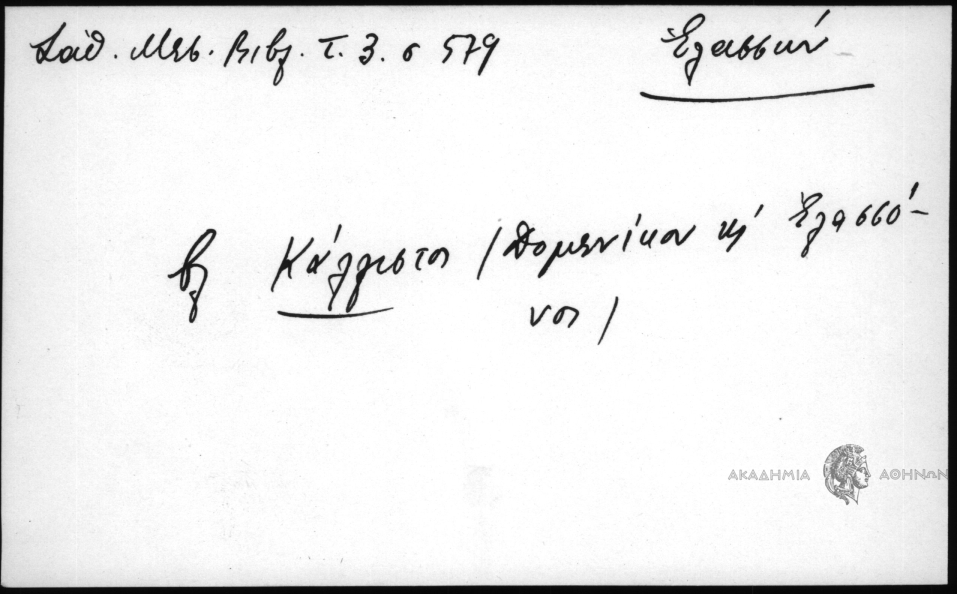 Σάθ. Μεσ. Βιβλ. τ. 3. σ 579
Ἐλασσών
βλ Κάλλιστος / Δομενίκου κ) Ἐλασσό-
νος /
ΑΚΑΔΗΜΙΑ ΑΘΗΝΩΝ